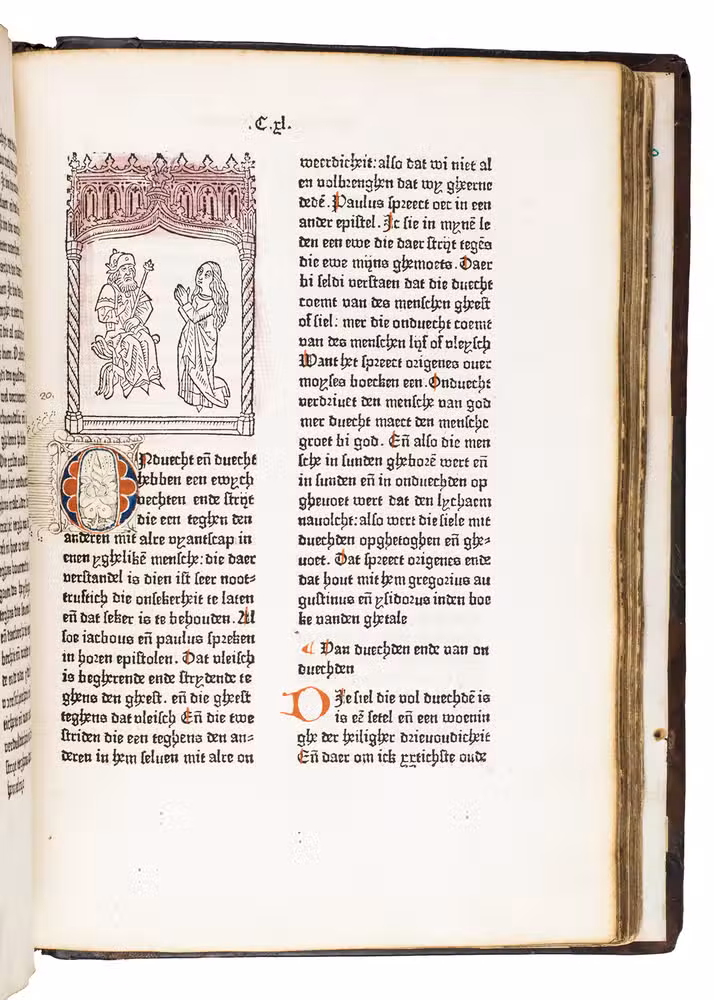 .C.xl.
ONduecht eñ duecht
hebben een ewych
vechten ende strijt
die een teghen den
anderen mit alre vyantscap in
enen ygheliken mensche: die daer
verstandel is dien ist seer noot-
truftich die onsekerheit te laten
eñ dat seker is te behouden. All
soe iacobus eñ paulus spreken
in horen epistolen. Dat vleisch
is begherende ende strydende te
ghens den gheest. eñ die gheest
teghens dat vleisch Eñ die twe
striden die een teghens den an-
deren in hem seluen mit alre on
weerdicheit: also dat wi niet al
en volbrenghen dat wy gheerne
dedē. Paulus spreect oec in een
ander epistel. Ic sie in mynē le
den een ewe die daer strijt tegēs
die ewe mijns ghemoets. Daer
bi seldi verstaen dat die duecht
coemt van des menschen gheest
of siel: mer die onduecht coemt
van des menschen lijf of vleysch
Want het spreect origenes ouer
moyses boecken een. Onduecht
verdriuet den mensche van god
mer duecht maect den mensche
groet bi god. Eñ also die men
sche in sunden gheborē wert eñ
in sunden eñ in onduechden op
gheuoet wert dat den lychaem
nauolcht: also wert die siele mit
duechden opghetoghen eñ ghe-
uoet. Dat spreect origenes ende
dat hout mit hem gregorius au
gustinus eñ ysidorus inden boe
ke vanden ghetale
Van duechden ende van on
duechden
DIe siel die vol duechdē is
is eē setel eñ een woenin
ghe der heiligher drievoudicheit
Eñ daer om ick xxtichste oude
20.